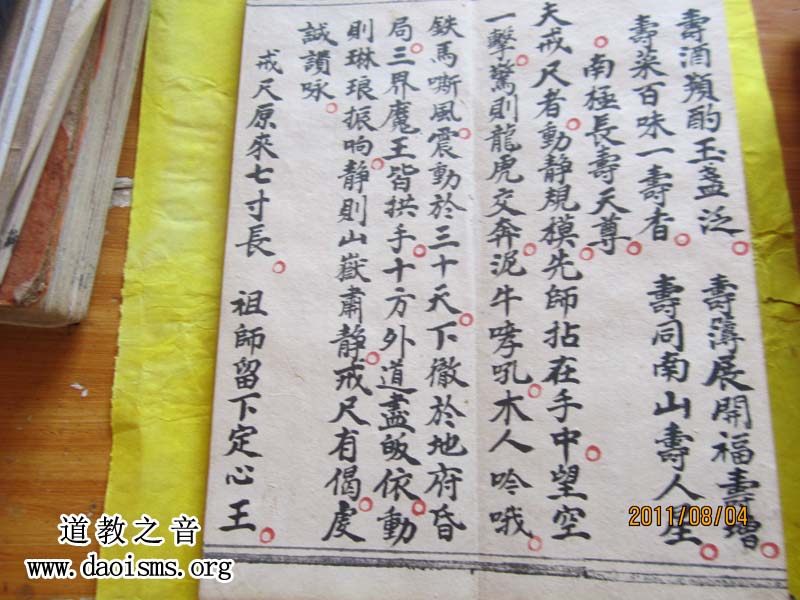 壽酒頻酌玉盞泛。壽薄展開福壽增。
壽菜百味一壽杳。壽同南山壽人生。
南極長壽天尊。
夫戒尺者。動静規模。先師拈在手中。望空
一擊。驚則龍虎交奔。泥牛哮吼。木人吟哦。
鉄馬嘶風。震動於三十天。下徹於地府昏
局。三界魔王皆拱手。十方外道盡皈依。動
則琳琅振响。静則山嶽肅静。戒尺有偈。虔
誠讚咏。
戒尺原來七寸長。祖師留下定心王。
2011/08/04
道教之音
www.daoisms.org